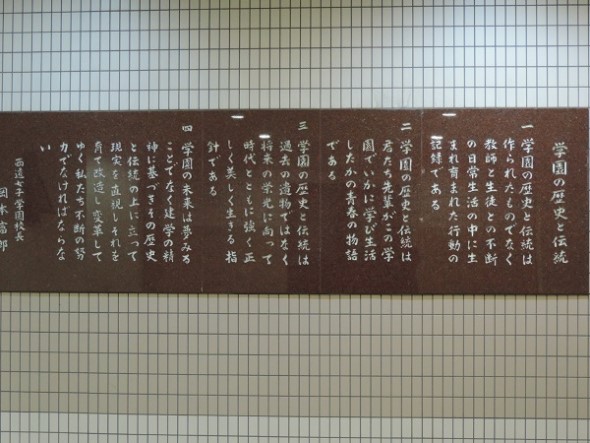 学園の歴史と伝統
一 学園の歴史と伝統は
作られたものでなく
教師と生徒との不断
の日常生活の中に生
まれ育まれた行動の
記録である
二 学園の歴史と伝統は
君たち先輩がこの学
園でいかに学び生活
したかの青春の物語
である
三 学園の歴史と伝統は
過去の遺物ではなく
将来の栄光に向って
時代とともに強く正
しく美しく生きる指
針である
四 学園の未来は夢みる
ことでなく建学の精
神に基づきその歴史
と伝統の上に立って
現実を直視しそれを
責て改造し変革して
ゆく私たち不断の努
力でなければならな
い
西遠女子学園校長
岡本富郎